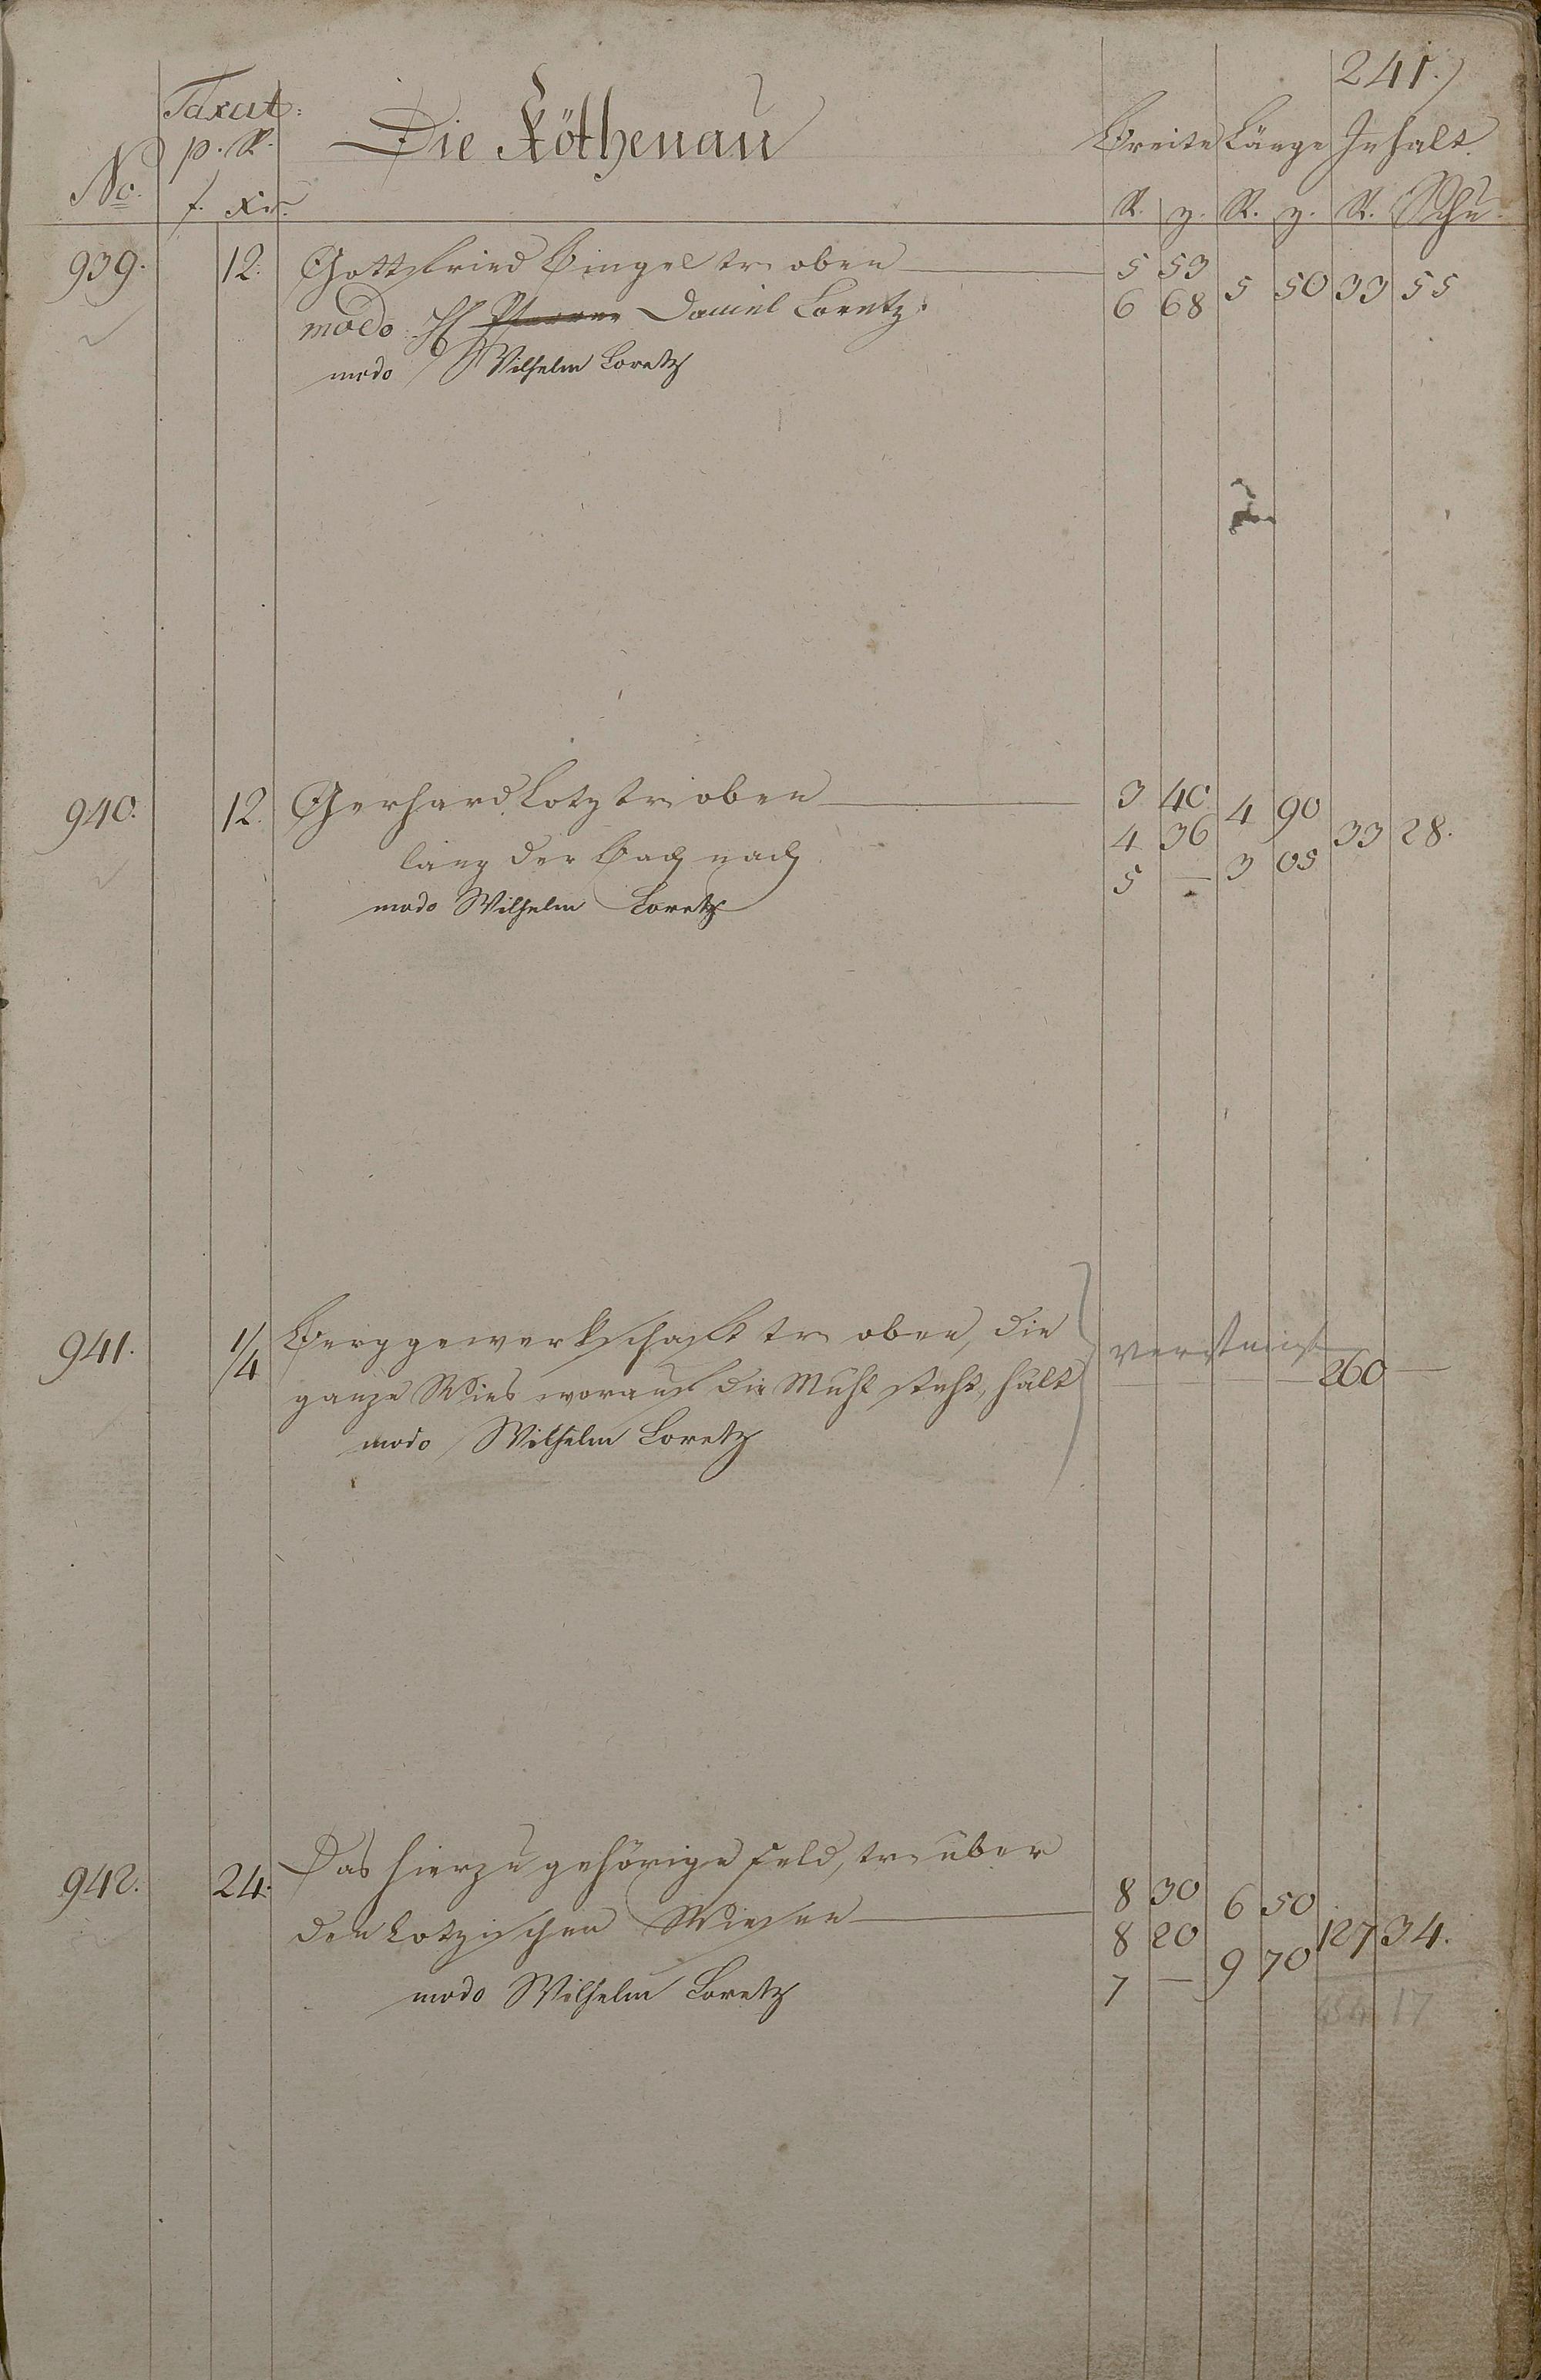 241.)
Taxat:
p. R.
Die Röthenau
Breite Länge Inhalt.
No.
f. Xr.
R. z. R. z. R. Schu.
939. 12. Gottfried Bingel tr. oben 5 53 5 50 33 55
modo H Pfarrer Daniel Loretz. 6 68
modo Wilhelm Loretz
940. 12. Gerhard Lotz tr. oben 3 40 4 90 33 28.
lang der Bach nach 4 36 3 05
5 —
modo Wilhelm Loretz
941. 1/4 Berggewerkschaft tr. oben, die
ganze Wies worauf die Mühl steht, hält 260 —
modo Wilhelm Loretz
942. 24. Das hierzu gehörige Feld, tr. über 8 30 6 50
den Lotzischen Wiesen 8 20 9 70 127 34.
7 —
modo Wilhelm Loretz
454 17